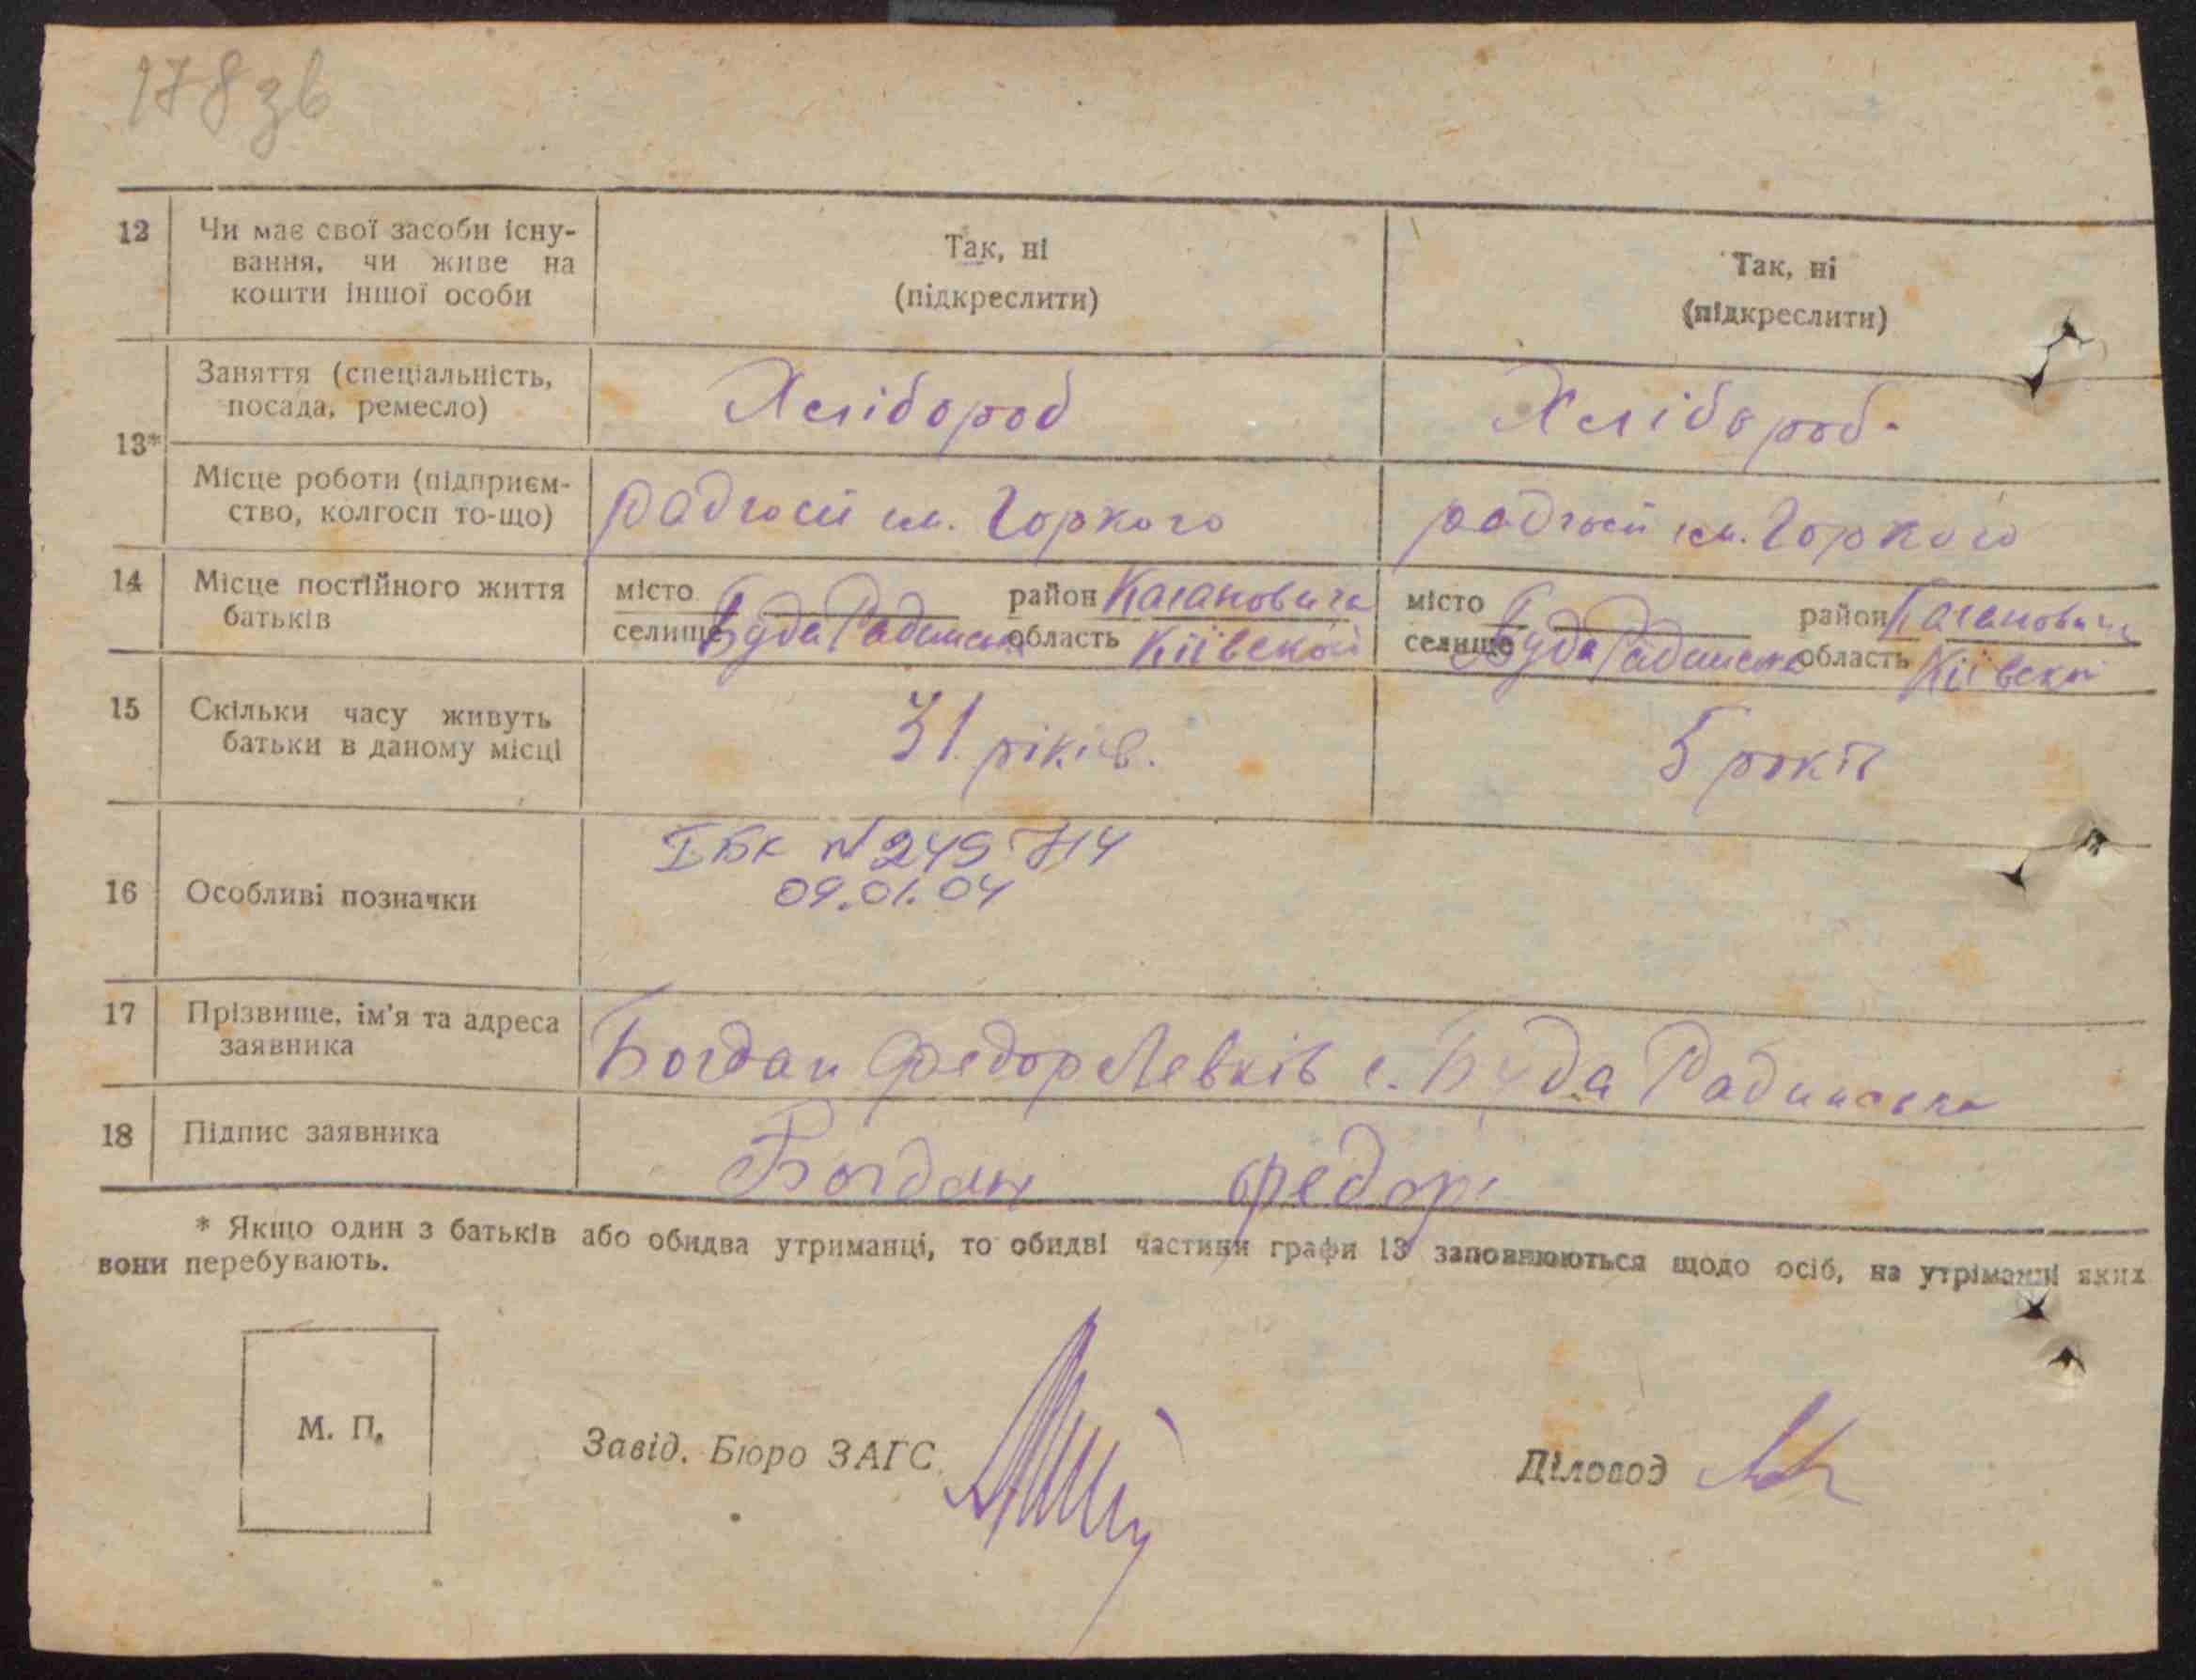 178 зв
12 Чи має свої засоби існу-
вання, чи живе на
кошти іншої особи
Так, ні
(підкреслити)
Так, ні
(підкреслити)
13*
Заняття (спеціальність,
посада, ремесло)
Хлібороб
Хлібороб.
Місце роботи (підприєм-
ство, колгосп то-що)
радгосп ім. Горкого
радгосп ім. Горкого
14 Місце постійного життя
батьків
місто
селище Буда Радинська
район Кагановича
область Київської
місто
селище Буда Радинська
район Кагановича
область
15 Скільки часу живуть
батьки в даному місці
31 ріків.
5 років
16 Особливі позначки
ІБК № 249714
09.01.04
17 Прізвище, ім'я та адреса
заявника
Богдан Федор Левків с. Буда Радинська
18 Підпис заявника
Богдан Федор
* Якщо один з батьків або обидва утриманці, то обидві частини графи 13 заповнюються щодо осіб, на утріманні яких
вони перебувають.
М. П.
Завід. Бюро ЗАГС
Діловод